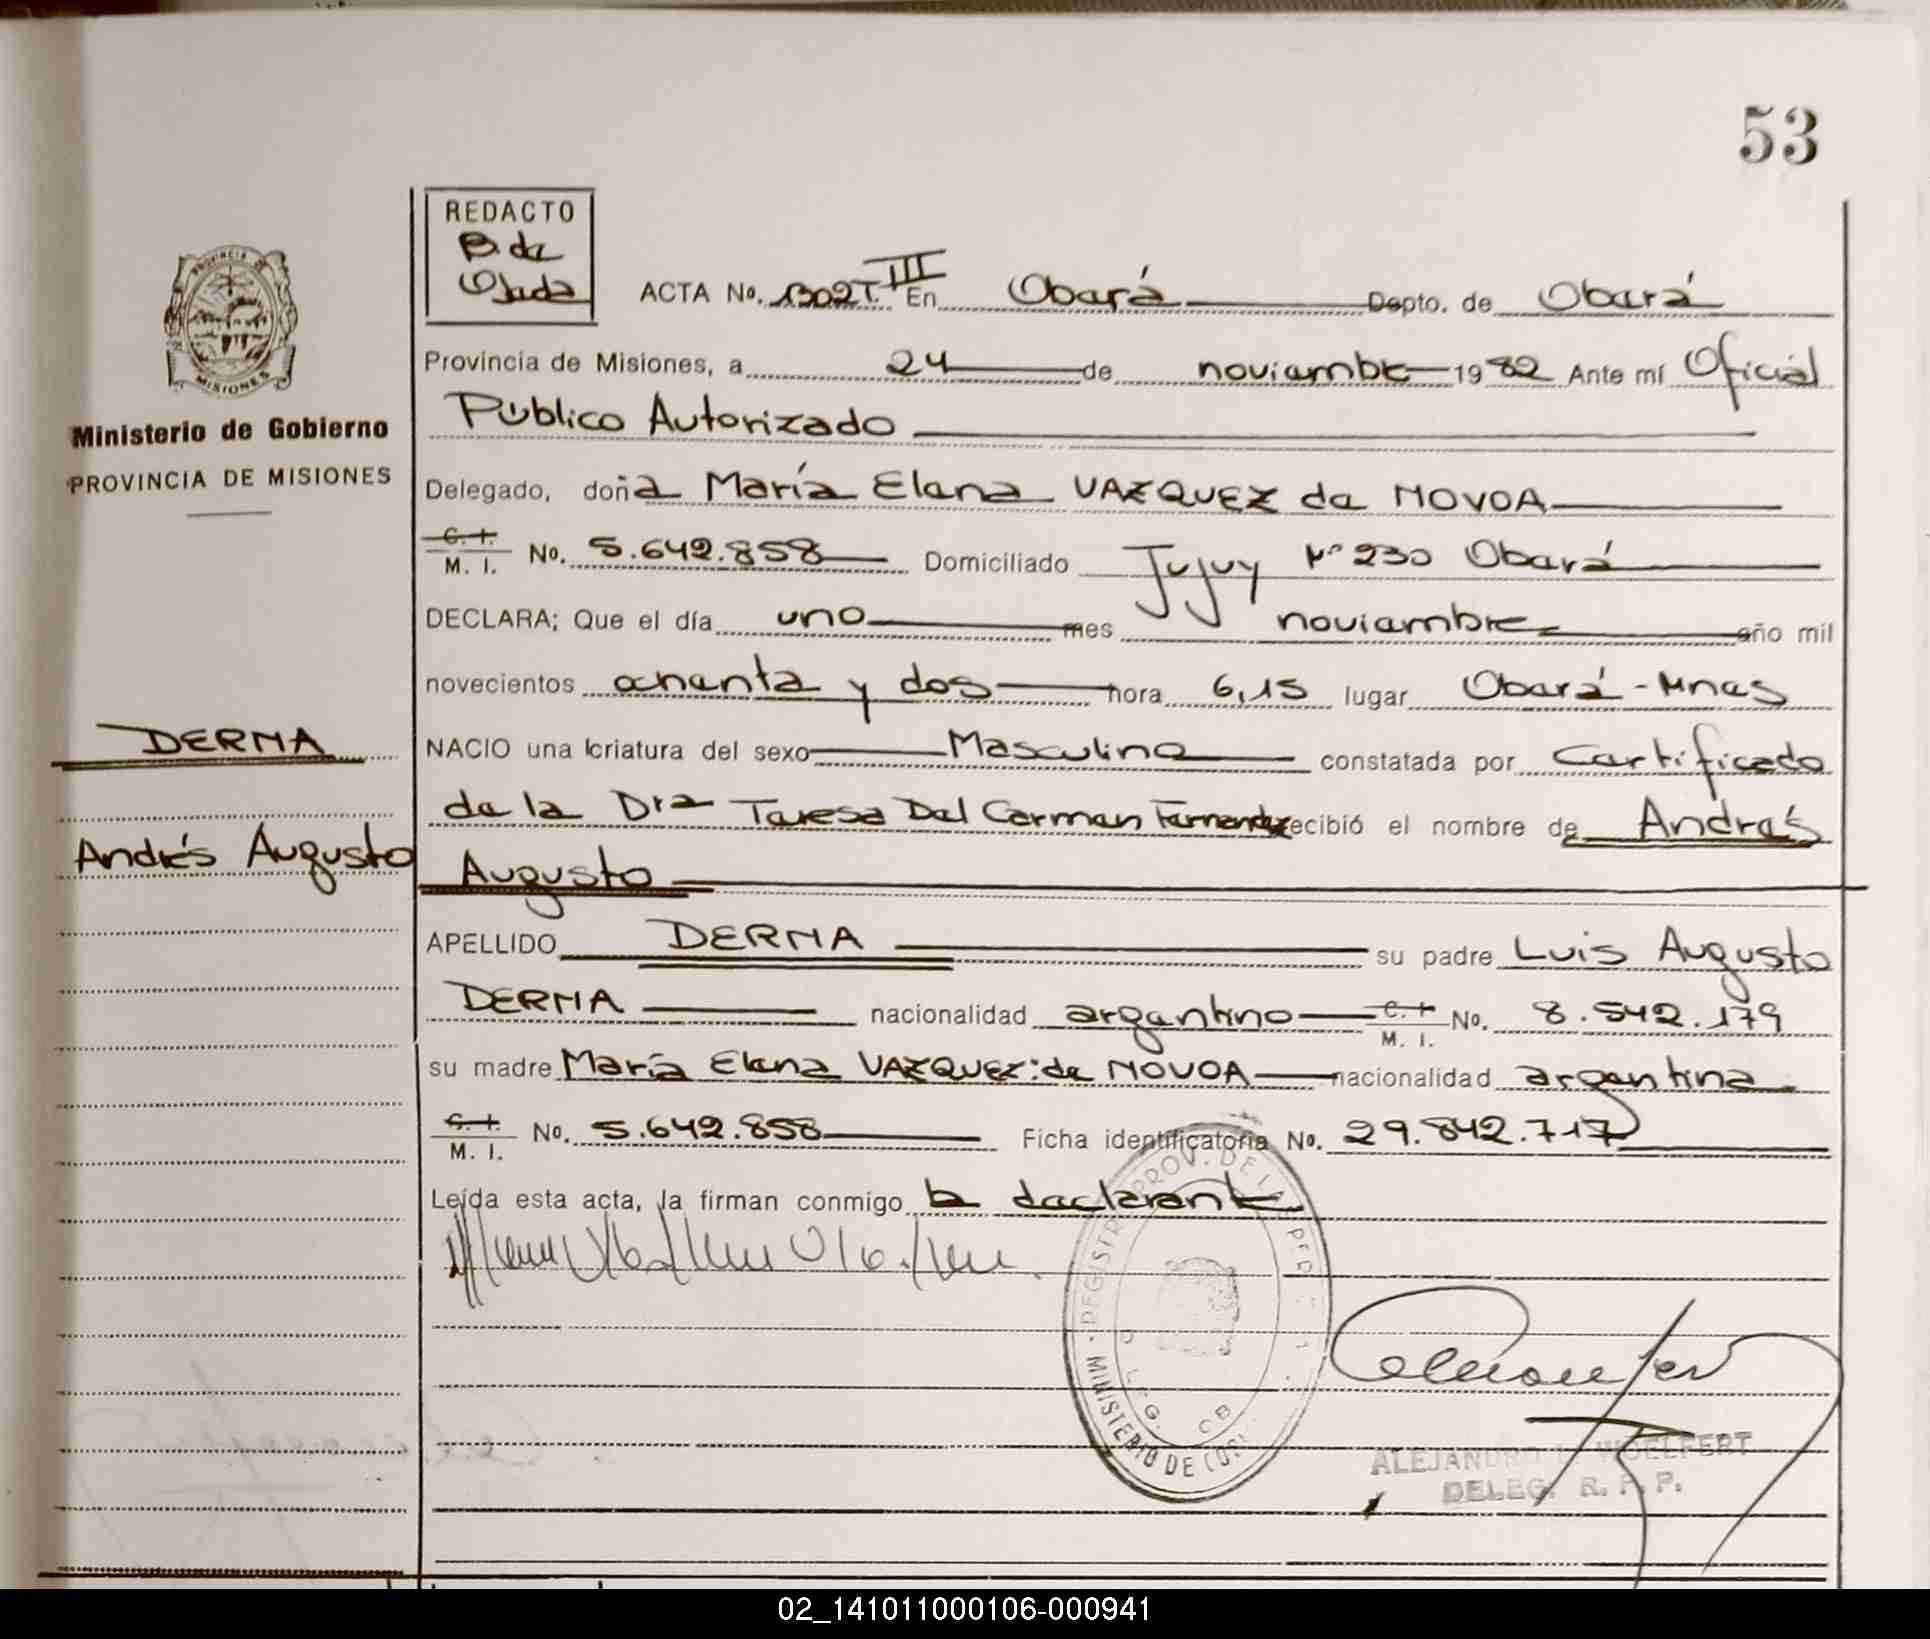 53
REDACTO
B. de
Ojeda
ACTA No. 1302 T. III En Oberá Depto. de Oberá
Provincia de Misiones, a 24 de noviembre 1982 Ante mí Oficial
Público Autorizado
Ministerio de Gobierno
PROVINCIA DE MISIONES
Delegado, doña María Elena VAZQUEZ de NOVOA
C. I.
M. I. No. 5.642.858 Domiciliado Jujuy Nº 230 Oberá
DECLARA; Que el día uno mes noviembre año mil
novecientos ochenta y dos hora 6,15 lugar Oberá - Mnes
DERNA
NACIO una criatura del sexo Masculino constatada por Certificado
de la Dra Teresa Del Carmen Fernandez recibió el nombre de Andrés
Andrés Augusto
Augusto
APELLIDO DERNA su padre Luis Augusto
DERNA nacionalidad argentino C. I.
M. I. No. 8.542.179
su madre María Elena VAZQUEZ: de NOVOA nacionalidad argentina
C. I.
M. I. No. 5.642.858 Ficha identificatoria No. 29.842.717
Leída esta acta, la firman conmigo la declarante
REGISTR PROV. DE LA
DELEG. OB
MINISTERIO DE GO
ALEJANDRO L. WOELFERT
DELEG. R. P. P.
02_141011000106-000941